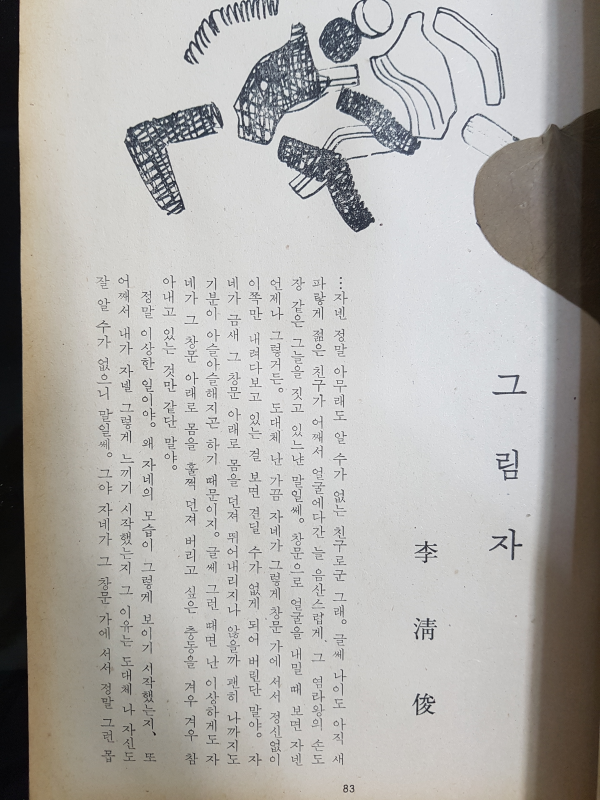 그림자
李淸俊
…자넨 정말 아무래도 알 수가 없는 친구로군 그래. 글쎄 나이도 아직 새
파랗게 젊은 친구가 어째서 얼굴에다간 늘 음산스럽게. 그 염라왕의 손도
장 같은 그늘을 짓고 있느냔 말일쎄. 창문으로 얼굴을 내밀 때 보면 자넨
언제나 그렇거든. 도대체 난 가끔 자네가 그렇게 창문 가에 서서 정신없이
이쪽만 내려다보고 있는 걸 보면 견딜 수가 없게 되어 버린단 말야. 자
네가 금새 그 창문 아래로 몸을 던져 뛰어내리지나 않을까 괜히 나까지도
기분이 아슬아슬해지곤 하기 때문이지. 글쎄 그런 때면 난 이상하게도 자
네가 그 창문 아래로 몸을 훌쩍 던져 버리고 싶은 충동을 겨우 겨우 참
아내고 있는 것만 같단 말야.
정말 이상한 일이야. 왜 자네의 모습이 그렇게 보이기 시작했는지, 또
어째서 내가 자넬 그렇게 느끼기 시작했는지 그 이유는 도대체 나 자신도
잘 알 수가 없으니 말일쎄. 그야 자네가 그 창문 가에 서서 정말 그런 몹
83